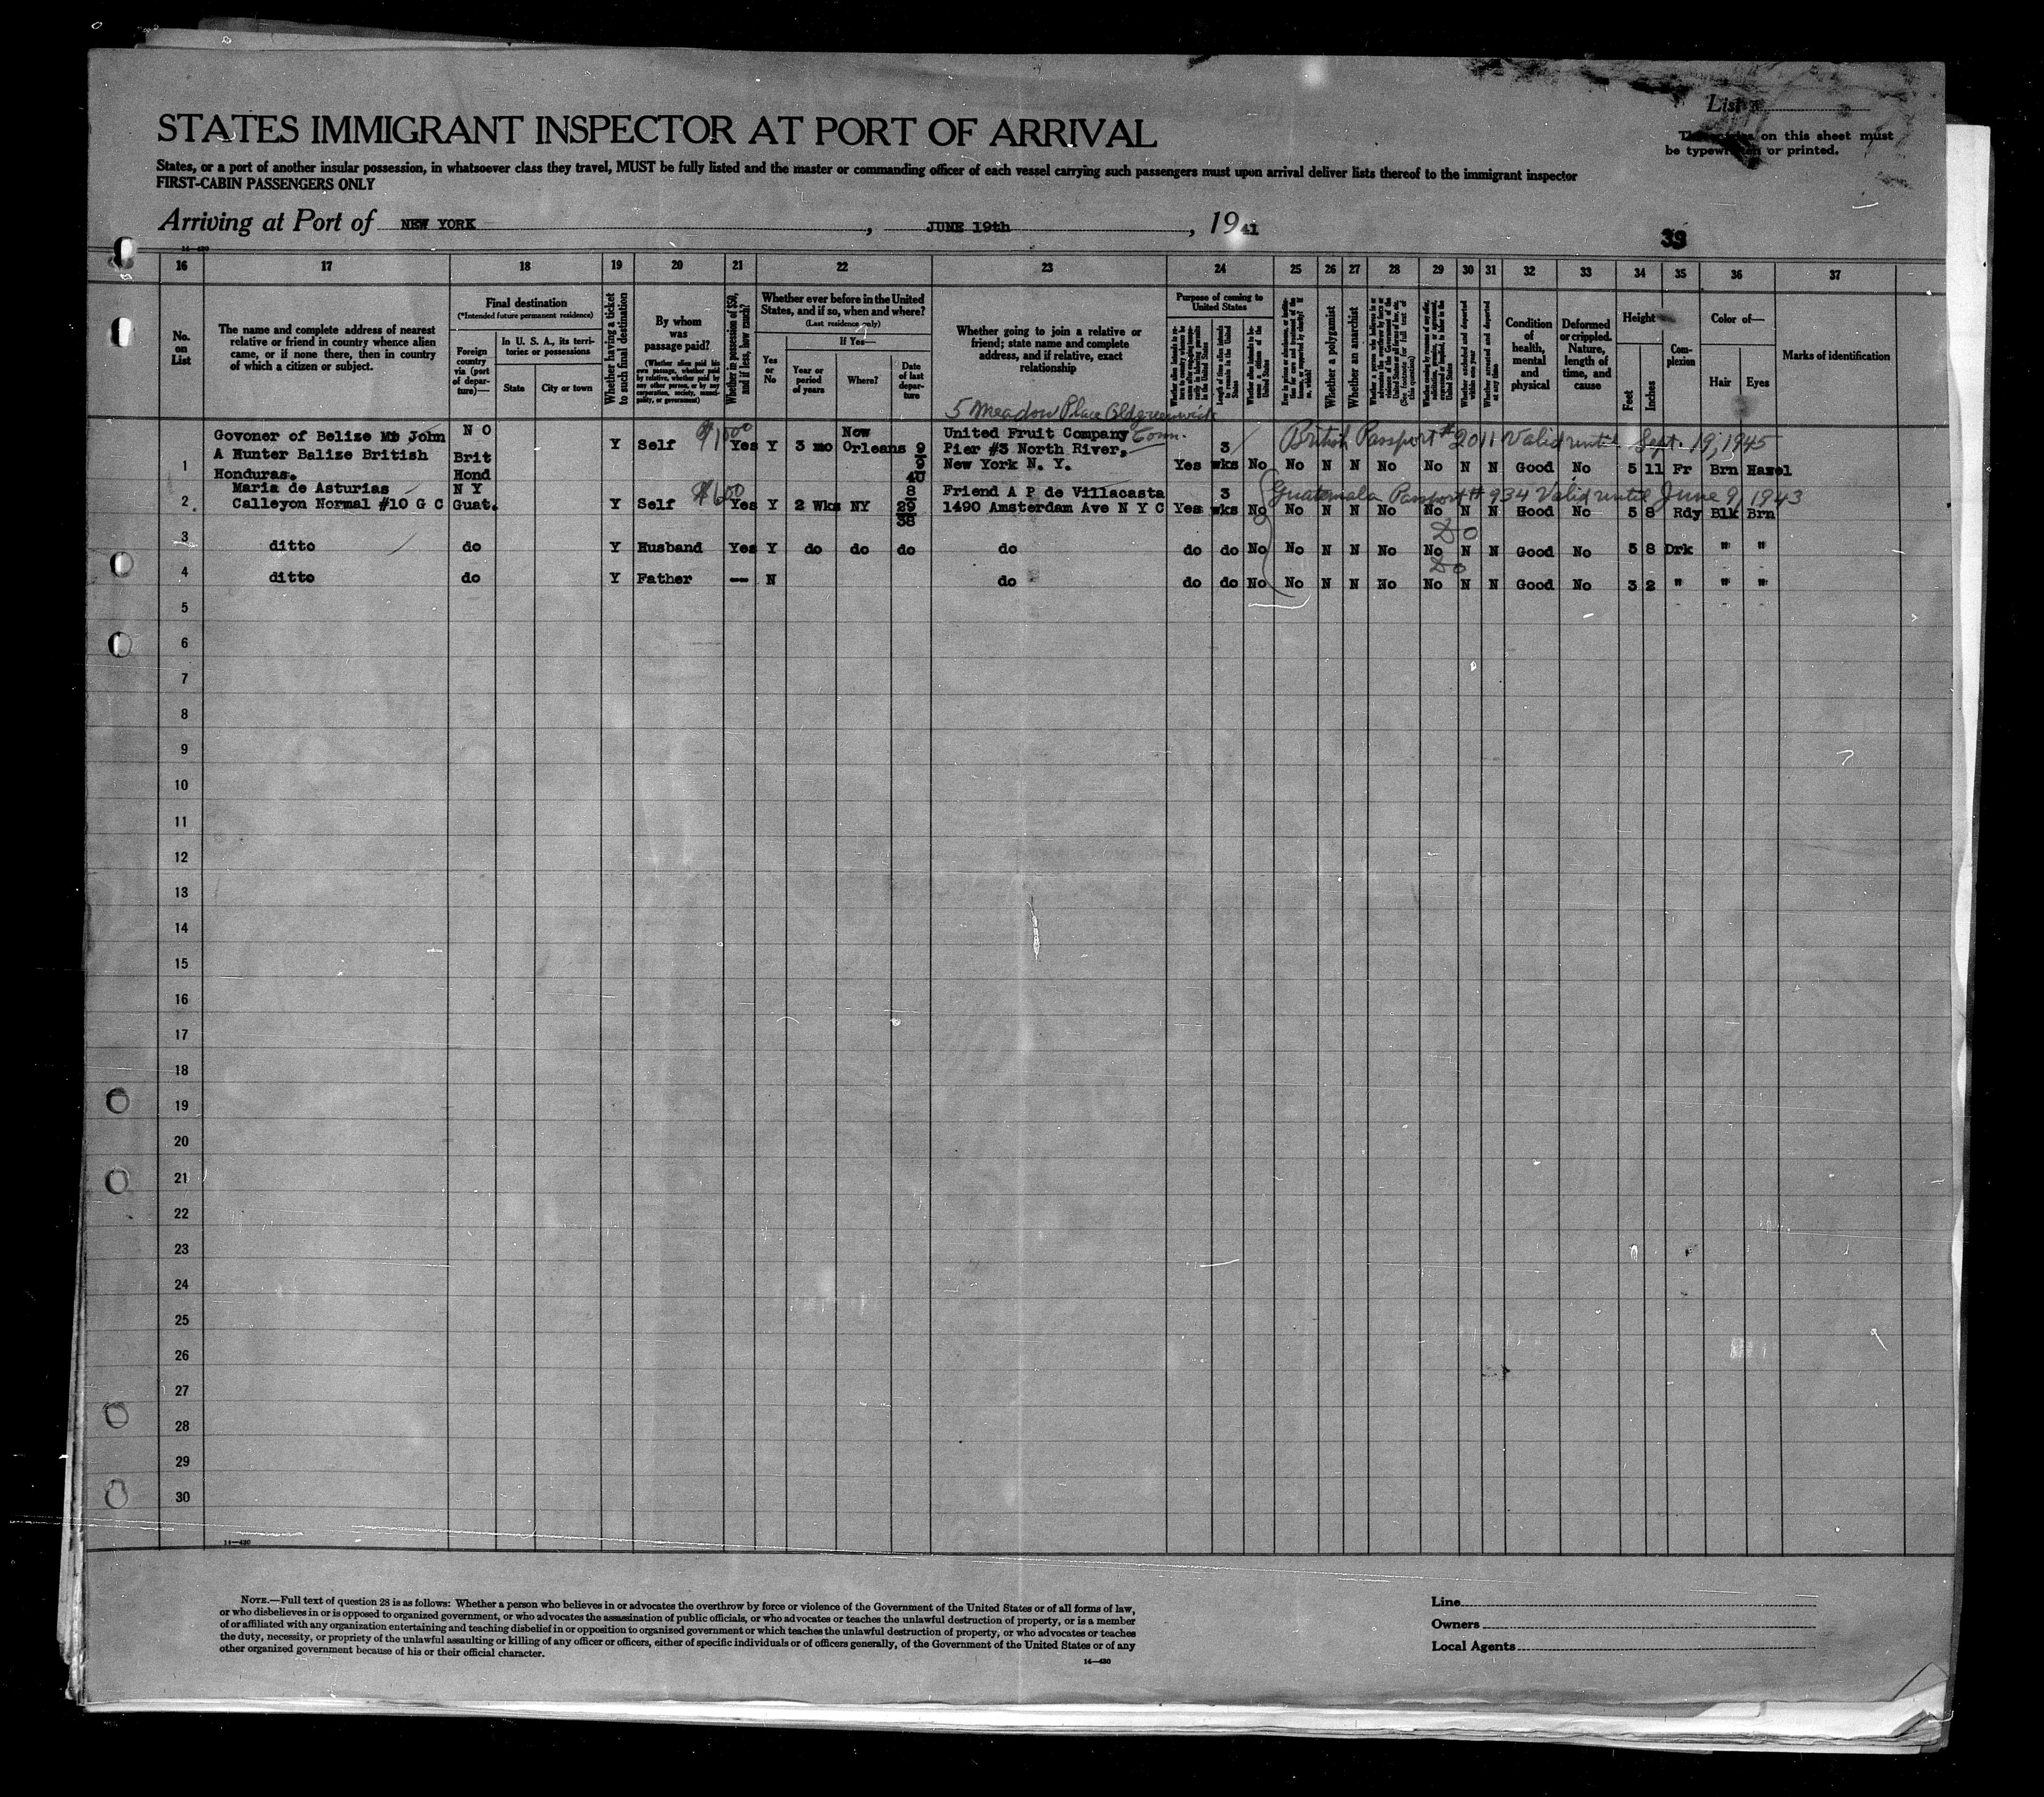 List
STATES IMMIGRANT INSPECTOR AT PORT OF ARRIVAL
on this sheet must
be typewritten or printed.
States, or a port of another insular possession, in whatsoever class they travel, MUST be fully listed and the master or commanding officer of each vessel carrying such passengers must upon arrival deliver lists thereof to the immigrant inspector
FIRST-CABIN PASSENGERS ONLY
Arriving at Port of NEW YORK, JUNE 19th, 1941
39
14—430
16 17 18 19 20 21 22 23 24 25 26 27 28 29 30 31 32 33 34 35 36 37
No. on List
The name and complete address of nearest
relative or friend in country whence alien
came, or if none there, then in country
of which a citizen or subject.
Final destination
(*Intended future permanent residence)
Foreign country via (port of departure)—
In U. S. A., its territories or possessions
State
City or town
Whether having a ticket to such final destination
By whom was passage paid?
(Whether alien paid his own passage, whether paid by relative, whether paid by any other person, or by any corporation, society, municipality, or government)
Whether in possession of $50, and if less, how much?
Whether ever before in the United States, and if so, when and where?
(Last residence only)
If Yes—
Yes or No
Year or period of years
Where?
Date of last departure
Whether going to join a relative or
friend; state name and complete
address, and if relative, exact
relationship
Purpose of coming to United States
Whether a polygamist
Whether an anarchist
Whether excluded and deported within one year
Whether arrested and deported at any time
Condition of health, mental and physical
Deformed or crippled. Nature, length of time, and cause
Height
Feet
Inches
Complexion
Color of—
Hair
Eyes
Marks of identification
5 Meadow Place Old greenwich
Conn.
Govoner of Belize Mr John N O
A Hunter Balize British Brit
1 Honduras. Hond
Y Self $1000 Yes Y 3 mo New Orleans 9 9 40
United Fruit Company
Pier #3 North River,
New York N. Y.
Yes 3 wks No No N N No No N N Good No 5 11 Fr Brn Hazel
British Passport # 2011 Valid until Sept. 19, 1945
2 Maria de Asturias N Y
Calleyon Normal #10 G C Guat.
Y Self $600 Yes Y 2 Wks NY 8 29 38
Friend A P de Villacasta
1490 Amsterdam Ave N Y C
Yes 3 wks No No N N No No N N Good No 5 8 Rdy Blk Brn
Guatemala Passport # 934 Valid until June 9, 1943
3 ditto do Y Husband Yes Y do do do do do do No No N N No No N N Good No 5 8 Drk " "
Do
4 ditto do Y Father -- N do do do No No N N No No N N Good No 3 2 " " "
Do
5
6
7
8
9
10
11
12
13
14
15
16
17
18
19
20
21
22
23
24
25
26
27
28
29
30
14—430
NOTE.—Full text of question 28 is as follows: Whether a person who believes in or advocates the overthrow by force or violence of the Government of the United States or of all forms of law,
or who disbelieves in or is opposed to organized government, or who advocates the assassination of public officials, or who advocates or teaches the unlawful destruction of property, or is a member
of or affiliated with any organization entertaining and teaching disbelief in or opposition to organized government or which teaches the unlawful destruction of property, or who advocates or teaches
the duty, necessity, or propriety of the unlawful assaulting or killing of any officer or officers, either of specific individuals or of officers generally, of the Government of the United States or of any
other organized government because of his or their official character.
14—430
Line
Owners
Local Agents